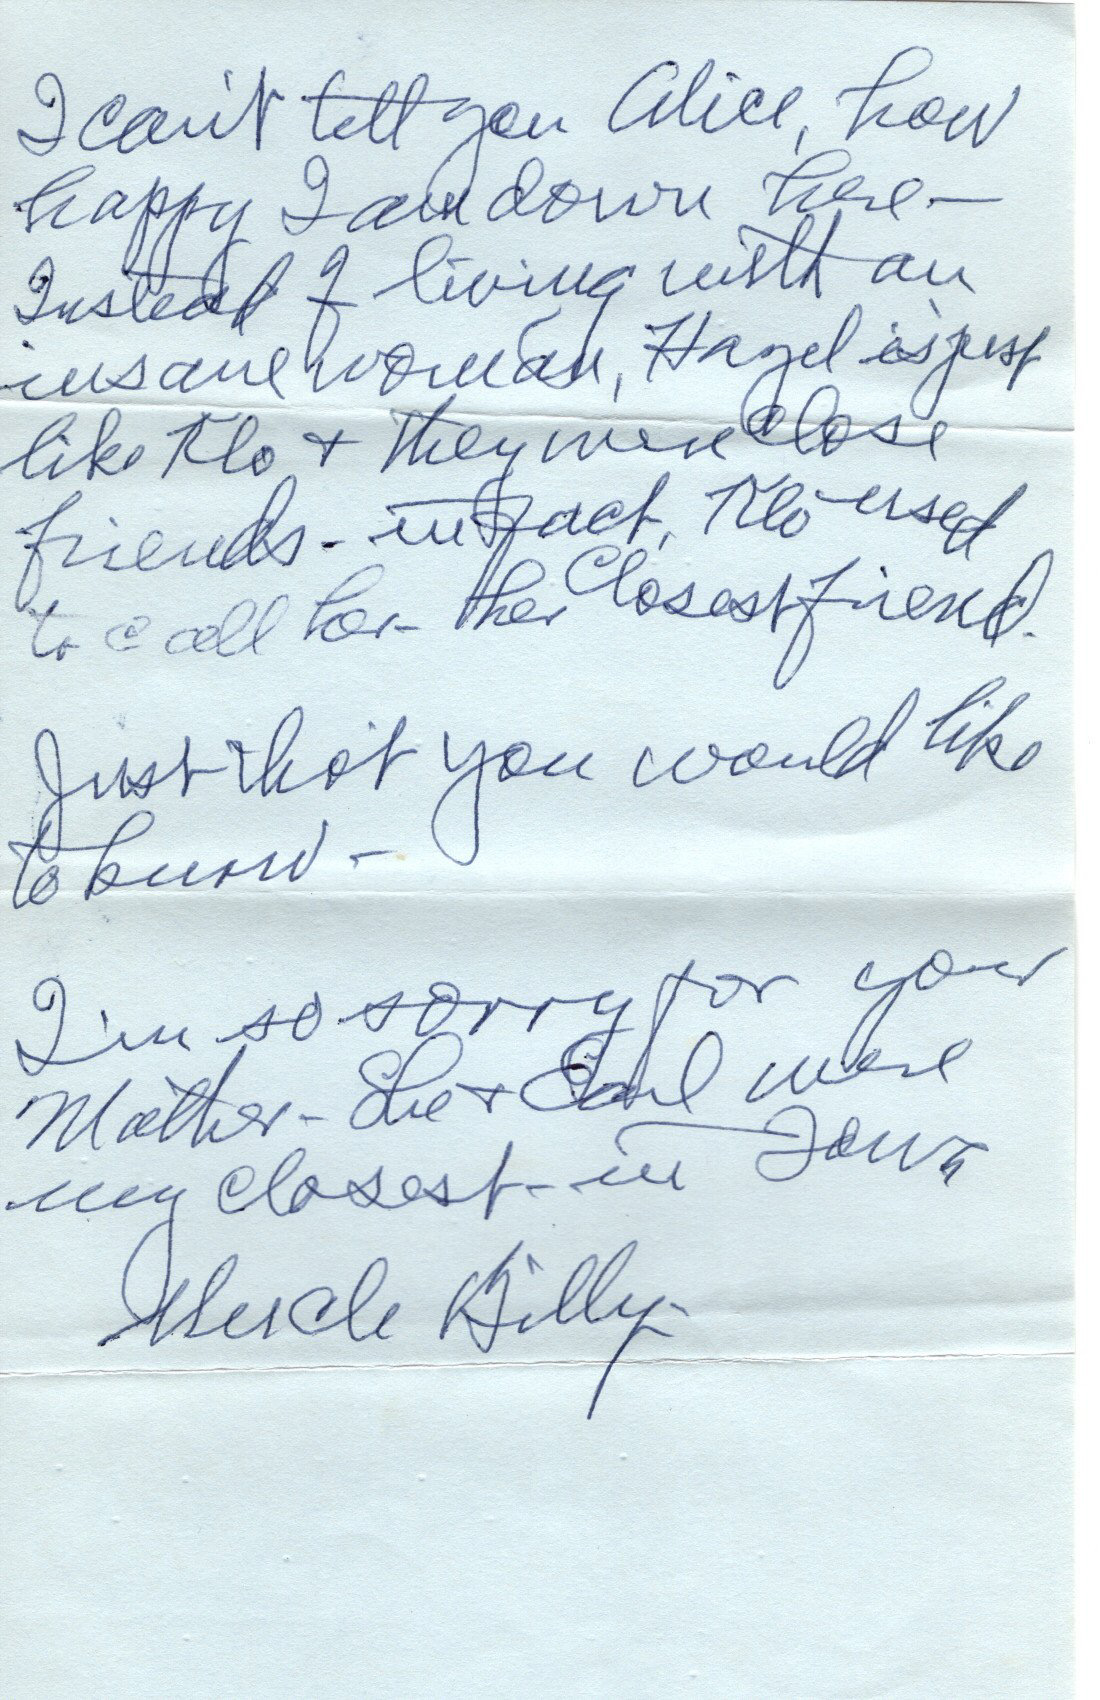 I can't tell you Alice, how
happy I am down here —
Instead of living with an
insane woman, Hazel is just
like Flo + they were close
friends - in fact, Flo used
to call her - her closest friend.
Just that you would like
to know -
I'm so sorry for your
Mother - She + Earl were
my closest - in Iowa
Uncle Billy -